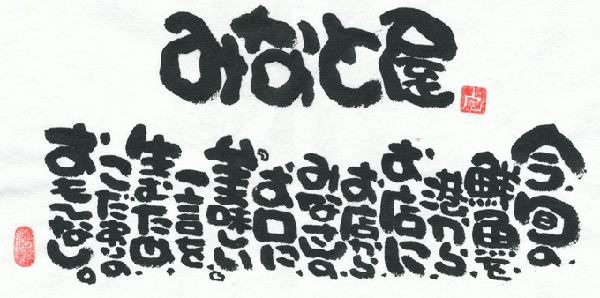 みなと屋
今、旬の
鮮魚を
港から
お店に
お店から
みなさんの
お口に
『美味しい』
一言を
生むため
こだわりの
おもてなし。